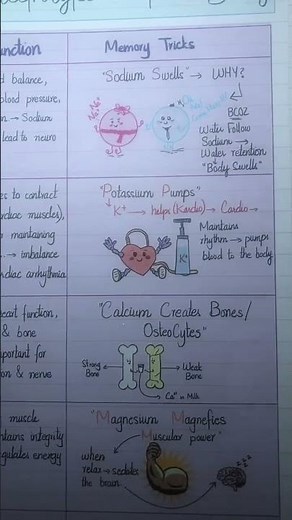 unction
Memory Tricks
d balance,
blood pressure,
n → Sodium
lead to neuro
"Sodium Swells" → WHY?
BCOZ
Water Follow
Sodium →
Water retention
"Body Swells"
es to contract
rdiac muscles),
r maintaining
... → imbalance
rdiac arrhythmia
"Potassium Pumps"
K+ → helps (Kardio) → Cardio →
Maintains
rhythm → pumps
blood to the body
K+
eart function,
& bone
portant for
on & nerve
"Calcium Creates Bones/
OsteoCytes"
Strong
Bone
Weak
Bone
Ca++ = Milk
muscle
ntains integrity
egulates energy
"Magnesium Magnefies
Muscular power"
when
relax → sedates
the brain